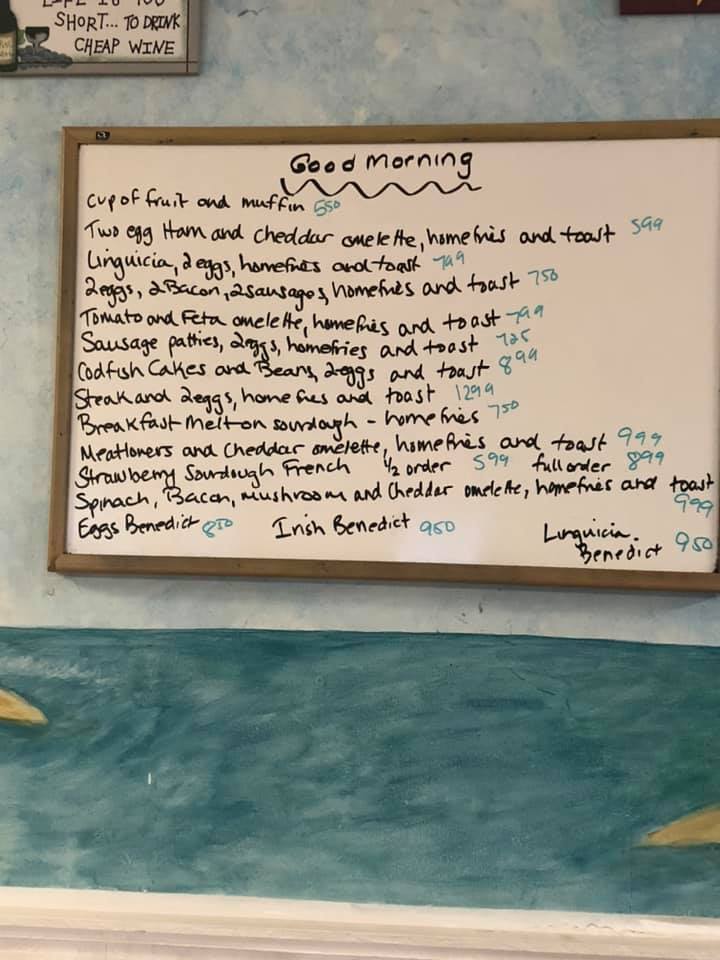 SHORT... TO DRINK
CHEAP WINE
Good Morning
Cup of fruit and muffin 550
Two egg Ham and cheddar omelette, homefries and toast 599
Linguicia, 2 eggs, homefries and toast 799
2 eggs, 2 Bacon, 2 sausages, homefries and toast 750
Tomato and Feta omelette, homefries and toast 799
Sausage patties, 2 eggs, homefries and toast 725
Codfish Cakes and Beans, 2 eggs and toast 899
Steak and 2 eggs, home fries and toast 1299
Breakfast Melt on sourdough - home fries 750
Meatlovers and Cheddar omelette, homefries and toast 999
Strawberry Sourdough French 1/2 order 599 full order 899
Spinach, Bacon, mushroom and Cheddar omelette, homefries and toast
999
Eggs Benedict 850 Irish Benedict 950 Linguicia.
Benedict 950